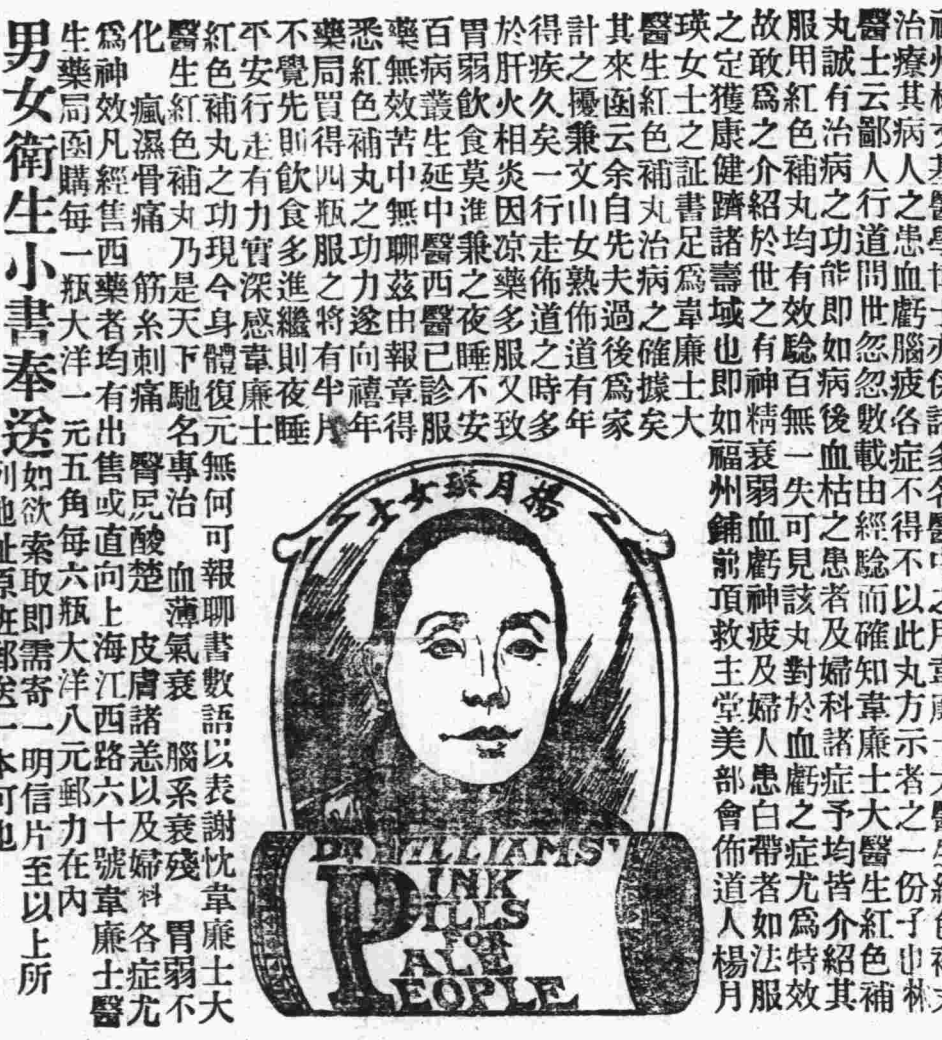 治療其病人之患血虧腦疲各症不得不以此丸方示者之一份子也林
醫士云鄙人行道問世忽忽數載由經驗而確知韋廉士大醫生紅色補
丸誠有治病之功能即如病後血枯之患者及婦科諸症予均皆介紹其
服用紅色補丸均有效驗百無一失可見該丸對於血虧之症尤爲特效
故敢爲之介紹於世之有神精衰弱血虧神疲及婦人患白帶者如法服
之定獲康健躋諸壽域也即如福州鋪前頂救主堂美部會佈道人楊月
瑛女士之証書足爲韋廉士大
醫生紅色補丸治病之確據矣
其來函云余自先夫過後爲家
計之擾兼文山女熟佈道有年
得疾久矣一行走佈道之時多
於肝火相炎因凉藥多服又致
胃弱飲食莫進兼之夜睡不安
百病叢生延中醫西醫已診服
藥無效苦中無聊茲由報章得
悉紅色補丸之功力遂向禧年
藥局買得四瓶服之將有半月
不覺先則飲食多進繼則夜睡
平安行走有力實深感韋廉士
楊月瑛女士
DR WILLIAMS'
PINK
PILLS
FOR
PALE
PEOPLE
紅色補丸之功現今身體復元無何可報聊書數語以表謝忱韋廉士大
醫生紅色補丸乃是天下馳名專治 血薄氣衰 腦系衰殘 胃弱不
化 瘋濕骨痛 筋糸刺痛 臀尻酸楚 皮膚諸恙以及婦科各症尤
爲神效凡經售西藥者均有出售或直向上海江西路六十號韋廉士醫
生藥局函購每一瓶大洋一元五角每六瓶大洋八元郵力在內
男女衛生小書奉送
如欲索取即需寄一明信片至以上所
列地址原班郵送一本可也